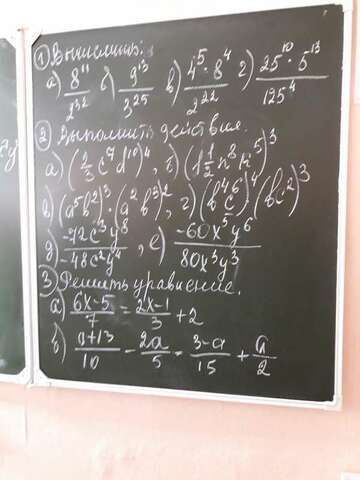 ① Вычислить:
а) 8¹¹/2³² б) 9¹³/3²⁵ в) 4⁵·8⁴/2²² г) 25¹⁰·5¹³/125⁴
② Выполнить действия.
а) (2/3 c⁷d¹⁰)⁴, б) (1 1/2 n⁸k⁵)³
в) (a⁵b²)³·(a²b³)², г) (b⁴c⁶)⁴·(bc²)³
д) -72c³y⁸/-48c²y⁴, е) -60x⁵y⁶/80x³y³
③ Решить уравнение.
а) (6x-5)/7 = (2x-1)/3 + 2
б) (a+13)/10 - 2a/5 = (3-a)/15 + a/2